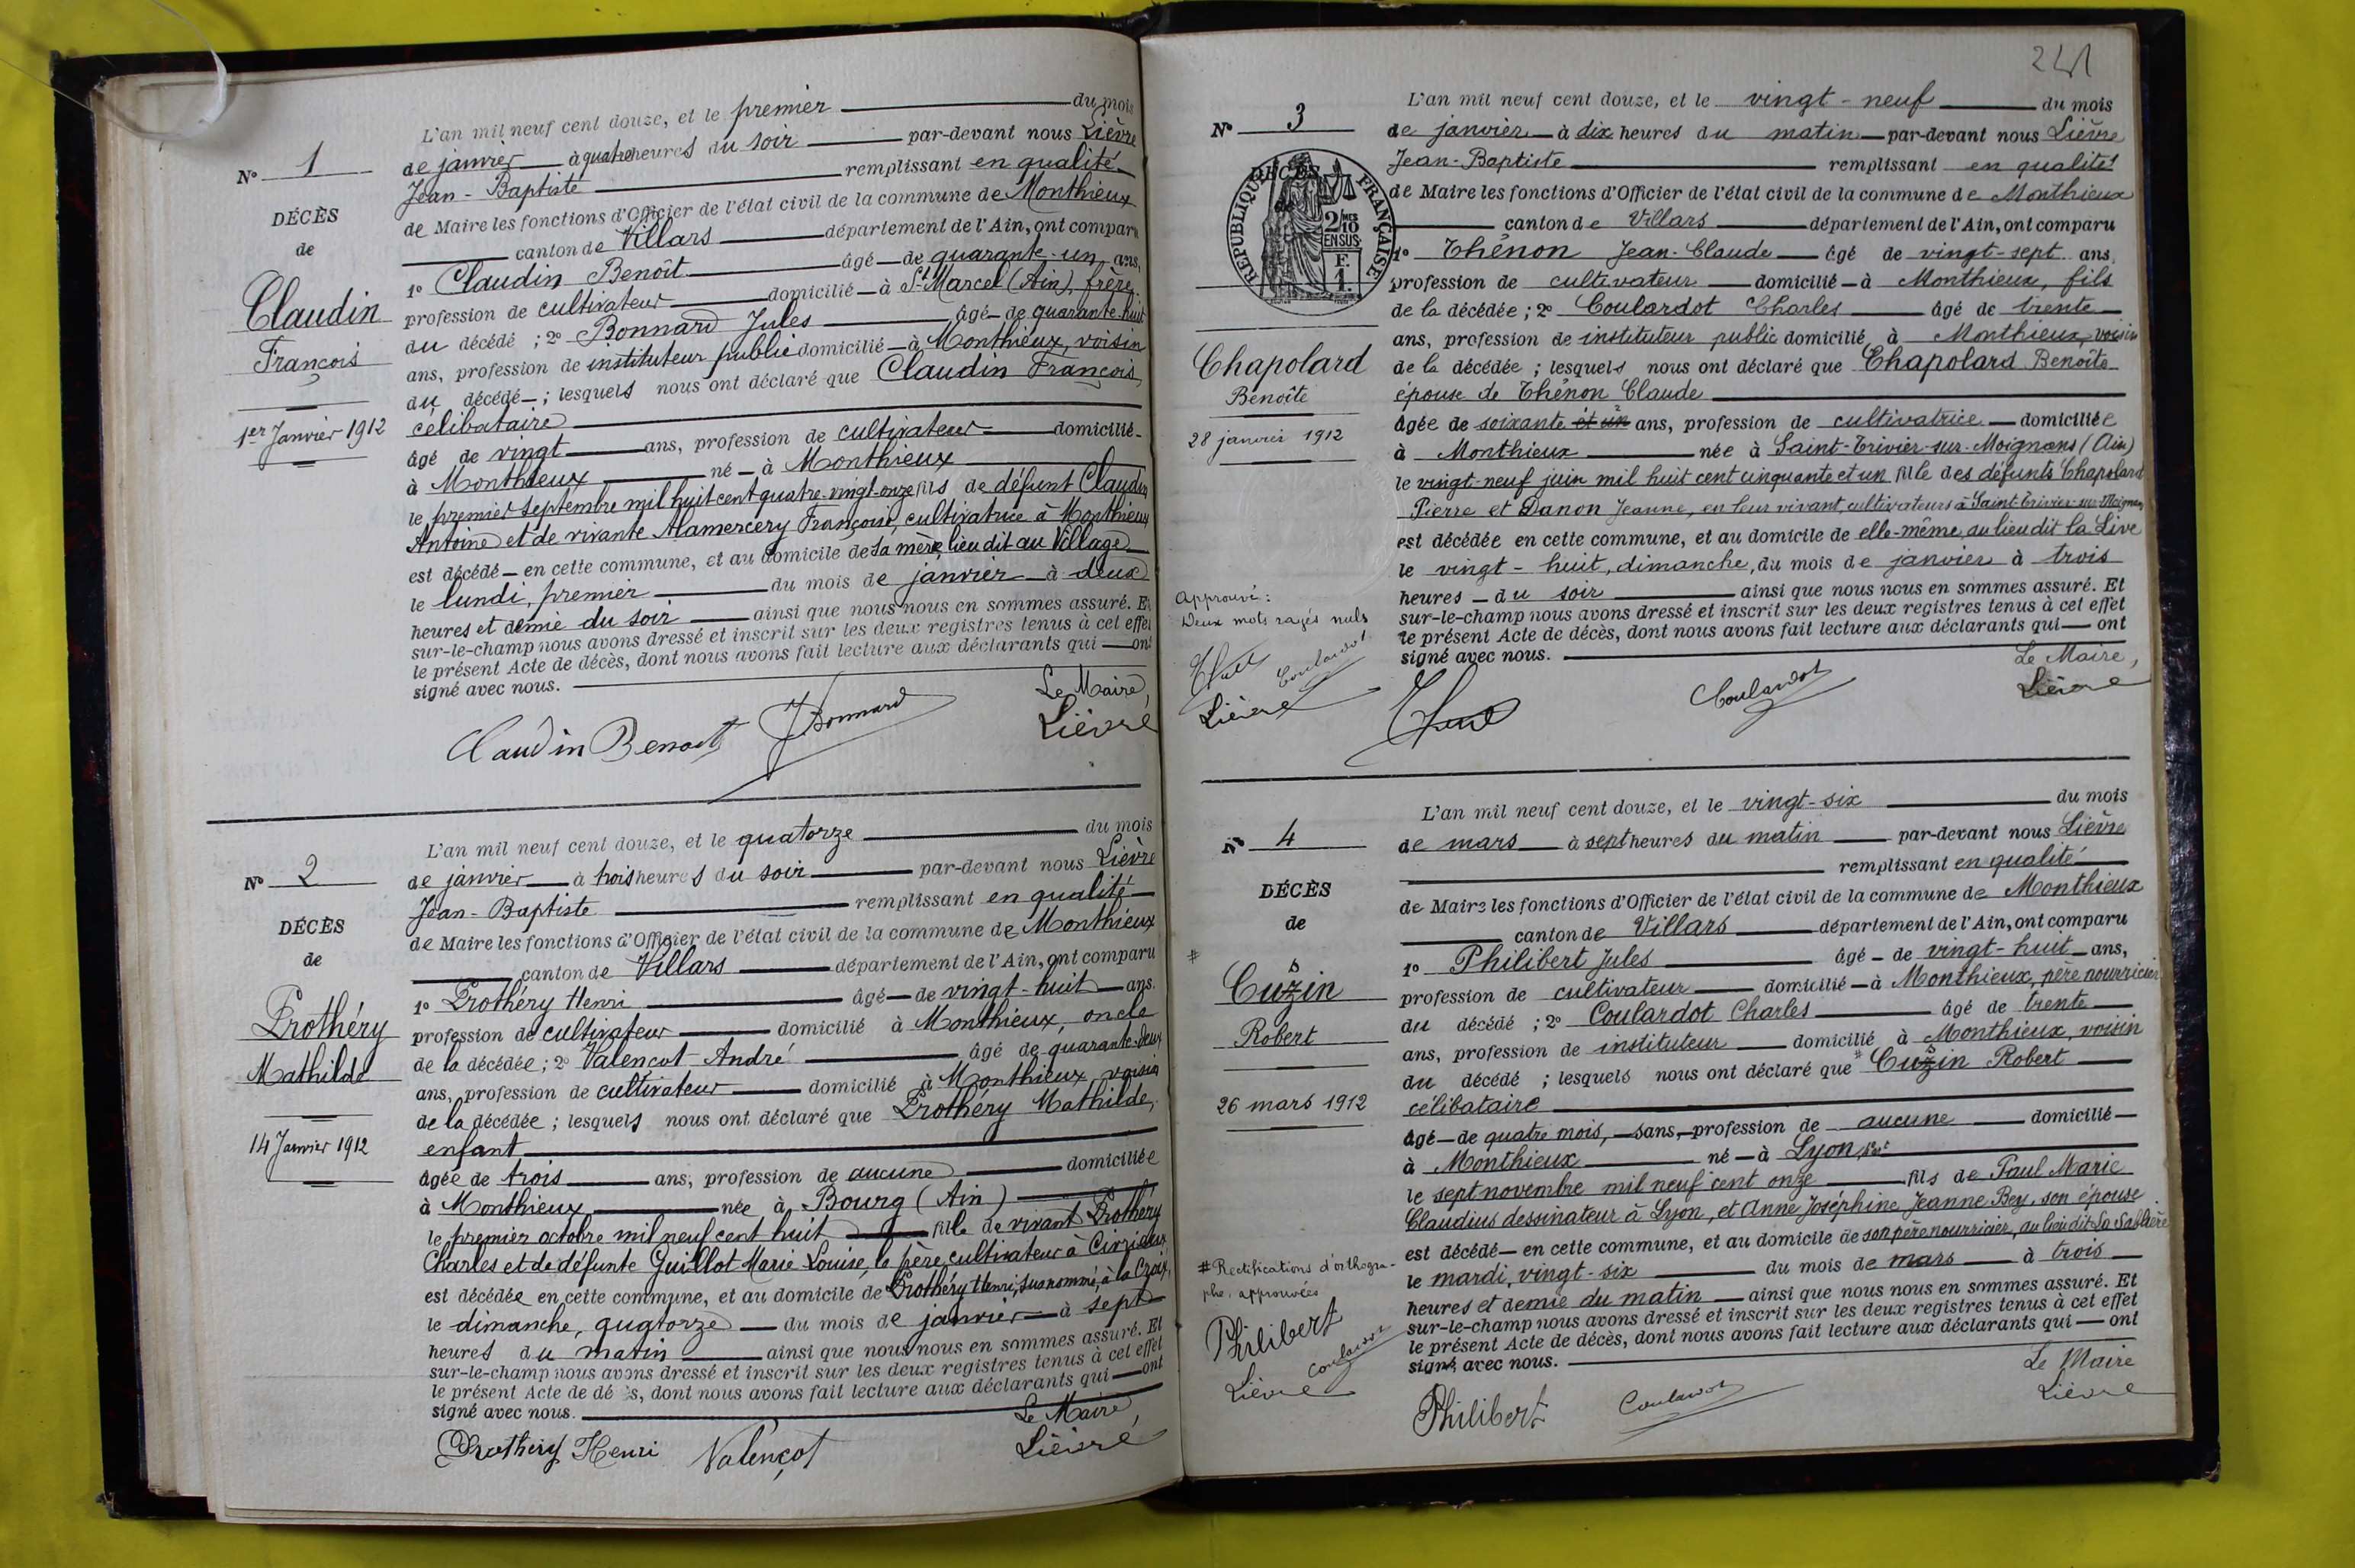 L'an mil neuf cent douze, et le premier du mois
N° 1
de janvier à quatre heures du soir par-devant nous Lièvre
Jean-Baptiste remplissant en qualité
DÉCÈS
de Maire les fonctions d'Officier de l'état civil de la commune de Monthieux
de
canton de Villars département de l'Ain, ont comparu
1° Claudin Benoît âgé de quarante-un ans,
Claudin
profession de cultivateur domicilié à St-Marcel (Ain), frère
du décédé ; 2° Bonnard Jules âgé de quarante-huit
François
ans, profession de instituteur public domicilié à Monthieux, voisin
du décédé ; lesquels nous ont déclaré que Claudin François,
1er Janvier 1912
célibataire
âgé de vingt ans, profession de cultivateur domicilié
à Monthieux né à Monthieux
le premier septembre mil huit cent quatre-vingt-onze fils de défunt Claudin
Antoine et de vivante Mamercery Françoise, cultivatrice à Monthieux
est décédé en cette commune, et au domicile de sa mère, lieu dit au Village
le lundi, premier du mois de janvier à deux
heures et demie du soir ainsi que nous nous en sommes assuré. Et
sur-le-champ nous avons dressé et inscrit sur les deux registres tenus à cet effet
le présent Acte de décès, dont nous avons fait lecture aux déclarants qui ont
signé avec nous.
Le Maire,
Claudin Benoit JBonnard Lièvre
L'an mil neuf cent douze, et le quatorze du mois
N° 2
de janvier à trois heures du soir par-devant nous Lièvre
Jean-Baptiste remplissant en qualité
DÉCÈS
de Maire les fonctions d'Officier de l'état civil de la commune de Monthieux
de
canton de Villars département de l'Ain, ont comparu
1° Prothéry Henri âgé de vingt-huit ans.
Prothéry
profession de cultivateur domicilié à Monthieux, oncle
de la décédée ; 2° Valençot André âgé de quarante-deux
Mathilde
ans, profession de cultivateur domicilié à Monthieux voisin
de la décédée ; lesquels nous ont déclaré que Prothéry Mathilde,
14 Janvier 1912
enfant
âgée de trois ans, profession de aucune domiciliée
à Monthieux née à Bourg (Ain)
le premier octobre mil neuf cent huit fille de vivant Prothéry
Charles et de défunte Guillot Marie Louise, le père cultivateur à Civrieux
est décédée en cette commune, et au domicile de Prothéry Henri, susnommé, à la Croix,
le dimanche, quatorze du mois de janvier à sept
heures du matin ainsi que nous nous en sommes assuré. Et
sur-le-champ nous avons dressé et inscrit sur les deux registres tenus à cet effet
le présent Acte de dé s, dont nous avons fait lecture aux déclarants qui ont
signé avec nous.
Le Maire,
Prothéry Henri Valençot Lièvre
241
L'an mil neuf cent douze, et le vingt-neuf du mois
N° 3
de janvier à dix heures du matin par-devant nous Lièvre
Jean-Baptiste remplissant en qualité
DÉCÈS
de
RÉPUBLIQUE FRANÇAISE
2/10MES
EN SUS
F.
1.
de Maire les fonctions d'Officier de l'état civil de la commune de Monthieux
canton de Villars département de l'Ain, ont comparu
1° Thénon Jean-Claude âgé de vingt-sept ans,
profession de cultivateur domicilié à Monthieux, fils
de la décédée ; 2° Coulardot Charles âgé de trente
ans, profession de instituteur public domicilié à Monthieux, voisin
Chapolard
de la décédée ; lesquels nous ont déclaré que Chapolard Benoîte
Benoîte
épouse de Thénon Claude
âgée de soixante et un ans, profession de cultivatrice domiciliée
28 janvier 1912
à Monthieux née à Saint-Trivier-sur-Moignans (Ain)
le vingt-neuf juin mil huit cent cinquante et un fille des défunts Chapolard
Pierre et Danon Jeanne, en leur vivant, cultivateurs à Saint-Trivier-sur-Moignans
est décédée en cette commune, et au domicile de elle-même, au lieu dit la Live
le vingt-huit, dimanche, du mois de janvier à trois
heures du soir ainsi que nous nous en sommes assuré. Et
sur-le-champ nous avons dressé et inscrit sur les deux registres tenus à cet effet
le présent Acte de décès, dont nous avons fait lecture aux déclarants qui ont
signé avec nous.
Approuvé :
Deux mots rayés nuls
Coulardot
Lièvre
Le Maire,
Coulardot Lièvre
L'an mil neuf cent douze, et le vingt-six du mois
N° 4
de mars à sept heures du matin par-devant nous Lièvre
remplissant en qualité
DÉCÈS
de Maire les fonctions d'Officier de l'état civil de la commune de Monthieux
de
canton de Villars département de l'Ain, ont comparu
#
1° Philibert Jules âgé de vingt-huit ans,
s
Cuzin
profession de cultivateur domicilié à Monthieux, père nourricier
du décédé ; 2° Coulardot Charles âgé de trente
Robert
ans, profession de instituteur domicilié à Monthieux, voisin
du décédé ; lesquels nous ont déclaré que # Cuzin Robert
26 mars 1912
célibataire
âgé de quatre mois, sans, profession de aucune domicilié
à Monthieux né à Lyon,
le sept novembre mil neuf cent onze fils de Paul Marie
Claudius dessinateur à Lyon, et Anne Joséphine Jeanne Bey, son épouse
est décédé en cette commune, et au domicile de son père nourricier, au lieu dit La Sablière
le mardi, vingt-six du mois de mars à trois
heures et demie du matin ainsi que nous nous en sommes assuré. Et
sur-le-champ nous avons dressé et inscrit sur les deux registres tenus à cet effet
le présent Acte de décès, dont nous avons fait lecture aux déclarants qui ont
signé avec nous.
# Rectifications d'orthogra-
phe, approuvées
Philibert
Coulardot
Lièvre
Le Maire
Philibert Coulardot Lièvre